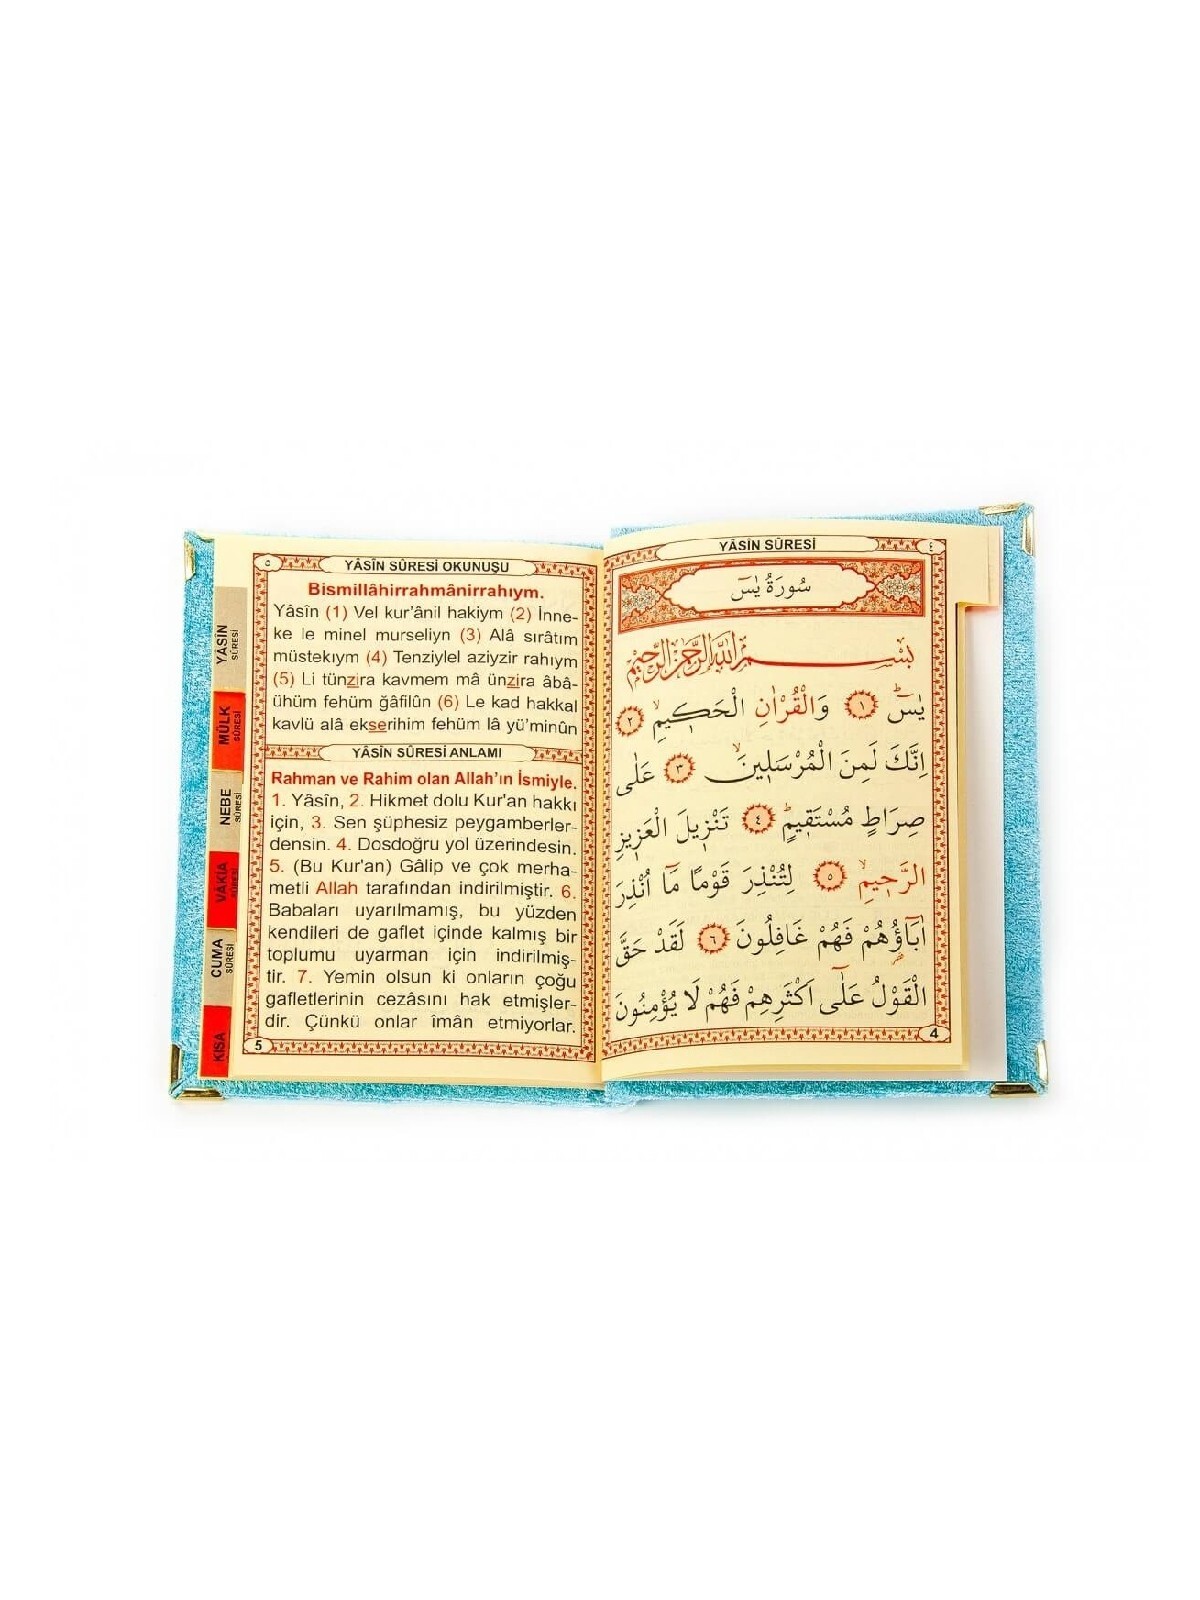 YÂSİN
SÛRESİ
MÜLK
SÛRESİ
NEBE
SÛRESİ
VÂKIA
SÛRESİ
CUMA
SÛRESİ
KISA
٥
YÂSÎN SÛRESİ OKUNUŞU
Bismillâhirrahmânirrahıym.
Yâsîn (1) Vel kur'ânil hakiym (2) İnne-
ke le minel murseliyn (3) Alâ sırâtım
müstekıym (4) Tenziylel aziyzir rahıym
(5) Li tünzira kavmem mâ ünzira âbâ-
ühüm fehüm ğafilûn (6) Le kad hakkal
kavlü alâ ekserihim fehüm lâ yü'minûn
YÂSÎN SÛRESİ ANLAMI
Rahman ve Rahim olan Allah'ın İsmiyle.
1. Yâsîn, 2. Hikmet dolu Kur'an hakkı
için, 3. Sen şüphesiz peygamberler-
densin. 4. Dosdoğru yol üzerindesin.
5. (Bu Kur'an) Gâlip ve çok merha-
metli Allah tarafından indirilmiştir. 6.
Babaları uyarılmamış, bu yüzden
kendileri de gaflet içinde kalmış bir
toplumu uyarman için indirilmiş-
tir. 7. Yemin olsun ki onların çoğu
gafletlerinin cezâsını hak etmişler-
dir. Çünkü onlar îmân etmiyorlar.
5
YÂSİN SÛRESİ
٤
سُورَةُ يٰسٓ
بِسْمِ اللّٰهِ الرَّحْمٰنِ الرَّحِيمِ
يٰسٓ ﴿١﴾ وَالْقُرْاٰنِ الْحَكٖيمِ ﴿٢﴾
اِنَّكَ لَمِنَ الْمُرْسَلٖينَ ﴿٣﴾ عَلٰى
صِرَاطٍ مُسْتَقٖيمٍ ﴿٤﴾ تَنْزٖيلَ الْعَزٖيزِ
الرَّحٖيمِ ﴿٥﴾ لِتُنْذِرَ قَوْمًا مَٓا اُنْذِرَ
اٰبَٓاؤُ۬هُمْ فَهُمْ غَافِلُونَ ﴿٦﴾ لَقَدْ حَقَّ
الْقَوْلُ عَلٰٓى اَكْثَرِهِمْ فَهُمْ لَا يُؤْمِنُونَ
4